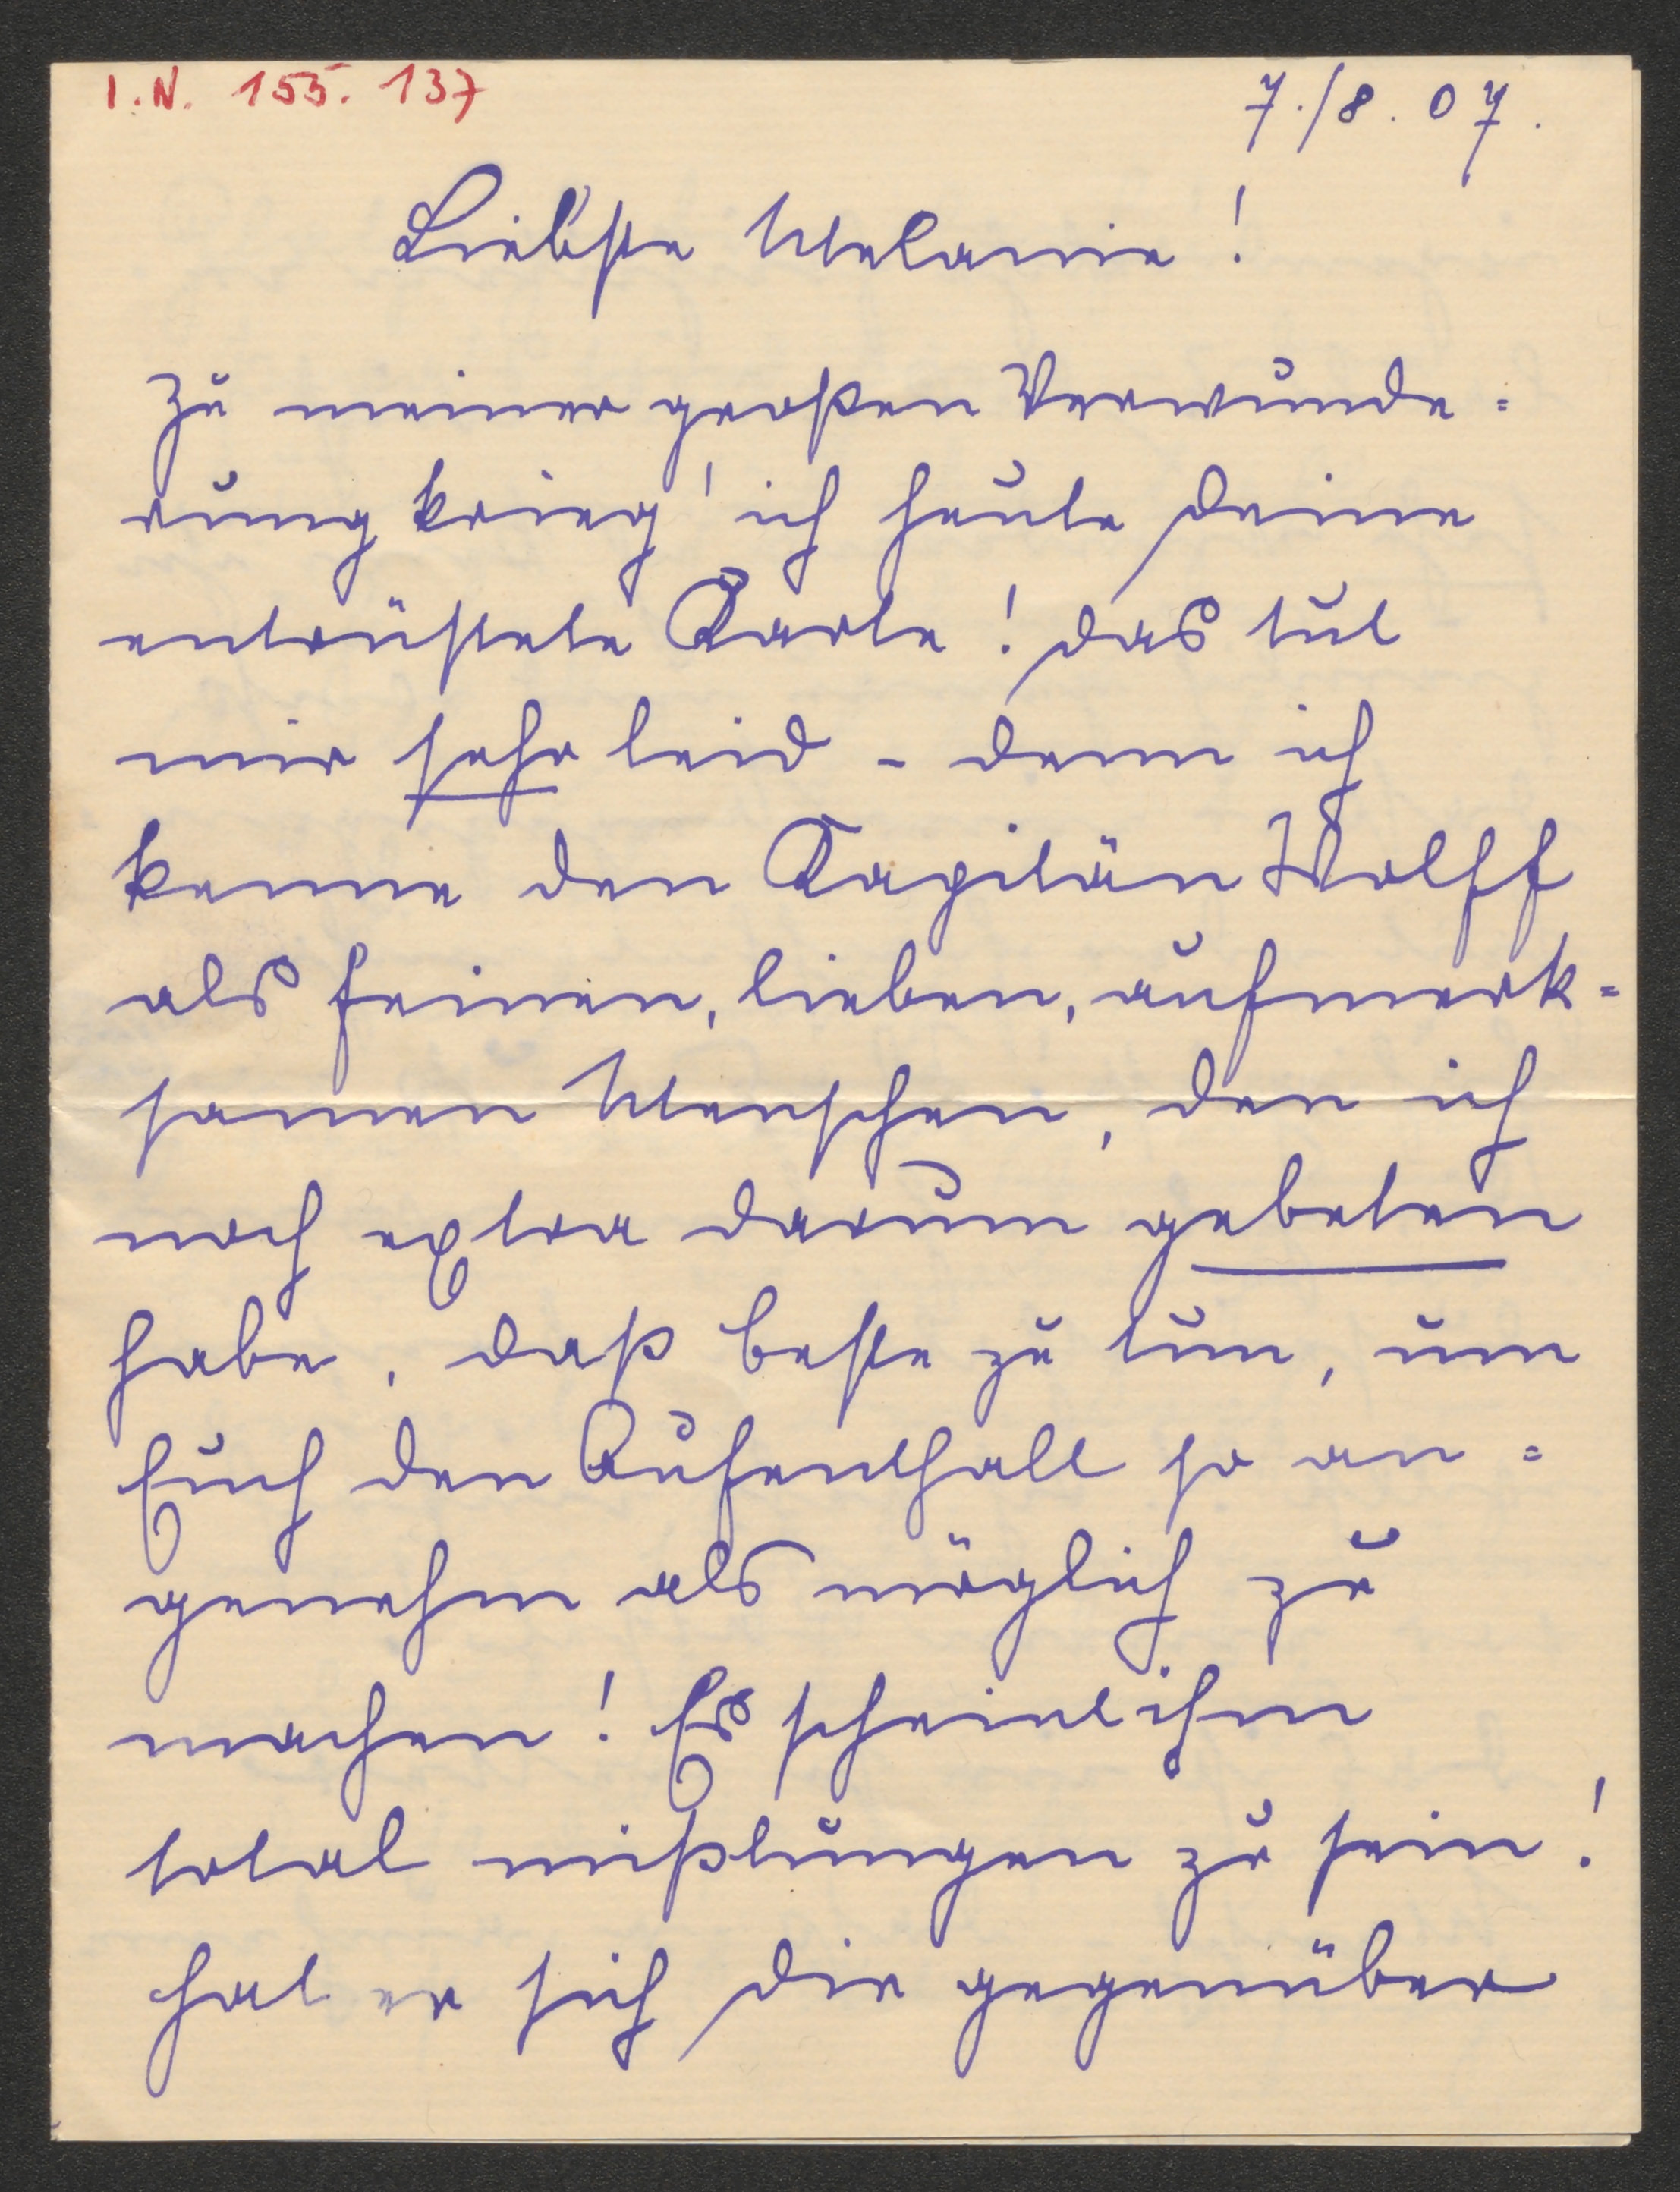 I.N. 155.137
7./8.07.
Liebste Melanie!
Zu meiner großen Verwunde=
rung krieg' ich heute Deine
entrüstete Karte! Das tut
mir sehr leid - denn ich
kenne den Kapitän Wolff
als feinen, lieben, aufmerk=
samen Menschen, den ich
noch extra darum gebeten
habe, daß beste zu tun, um
Euch den Aufenthalt so an=
genehm als möglich zu
machen! Es scheint ihm
total mißlungen zu sein!
hat er sich Dir gegenüber